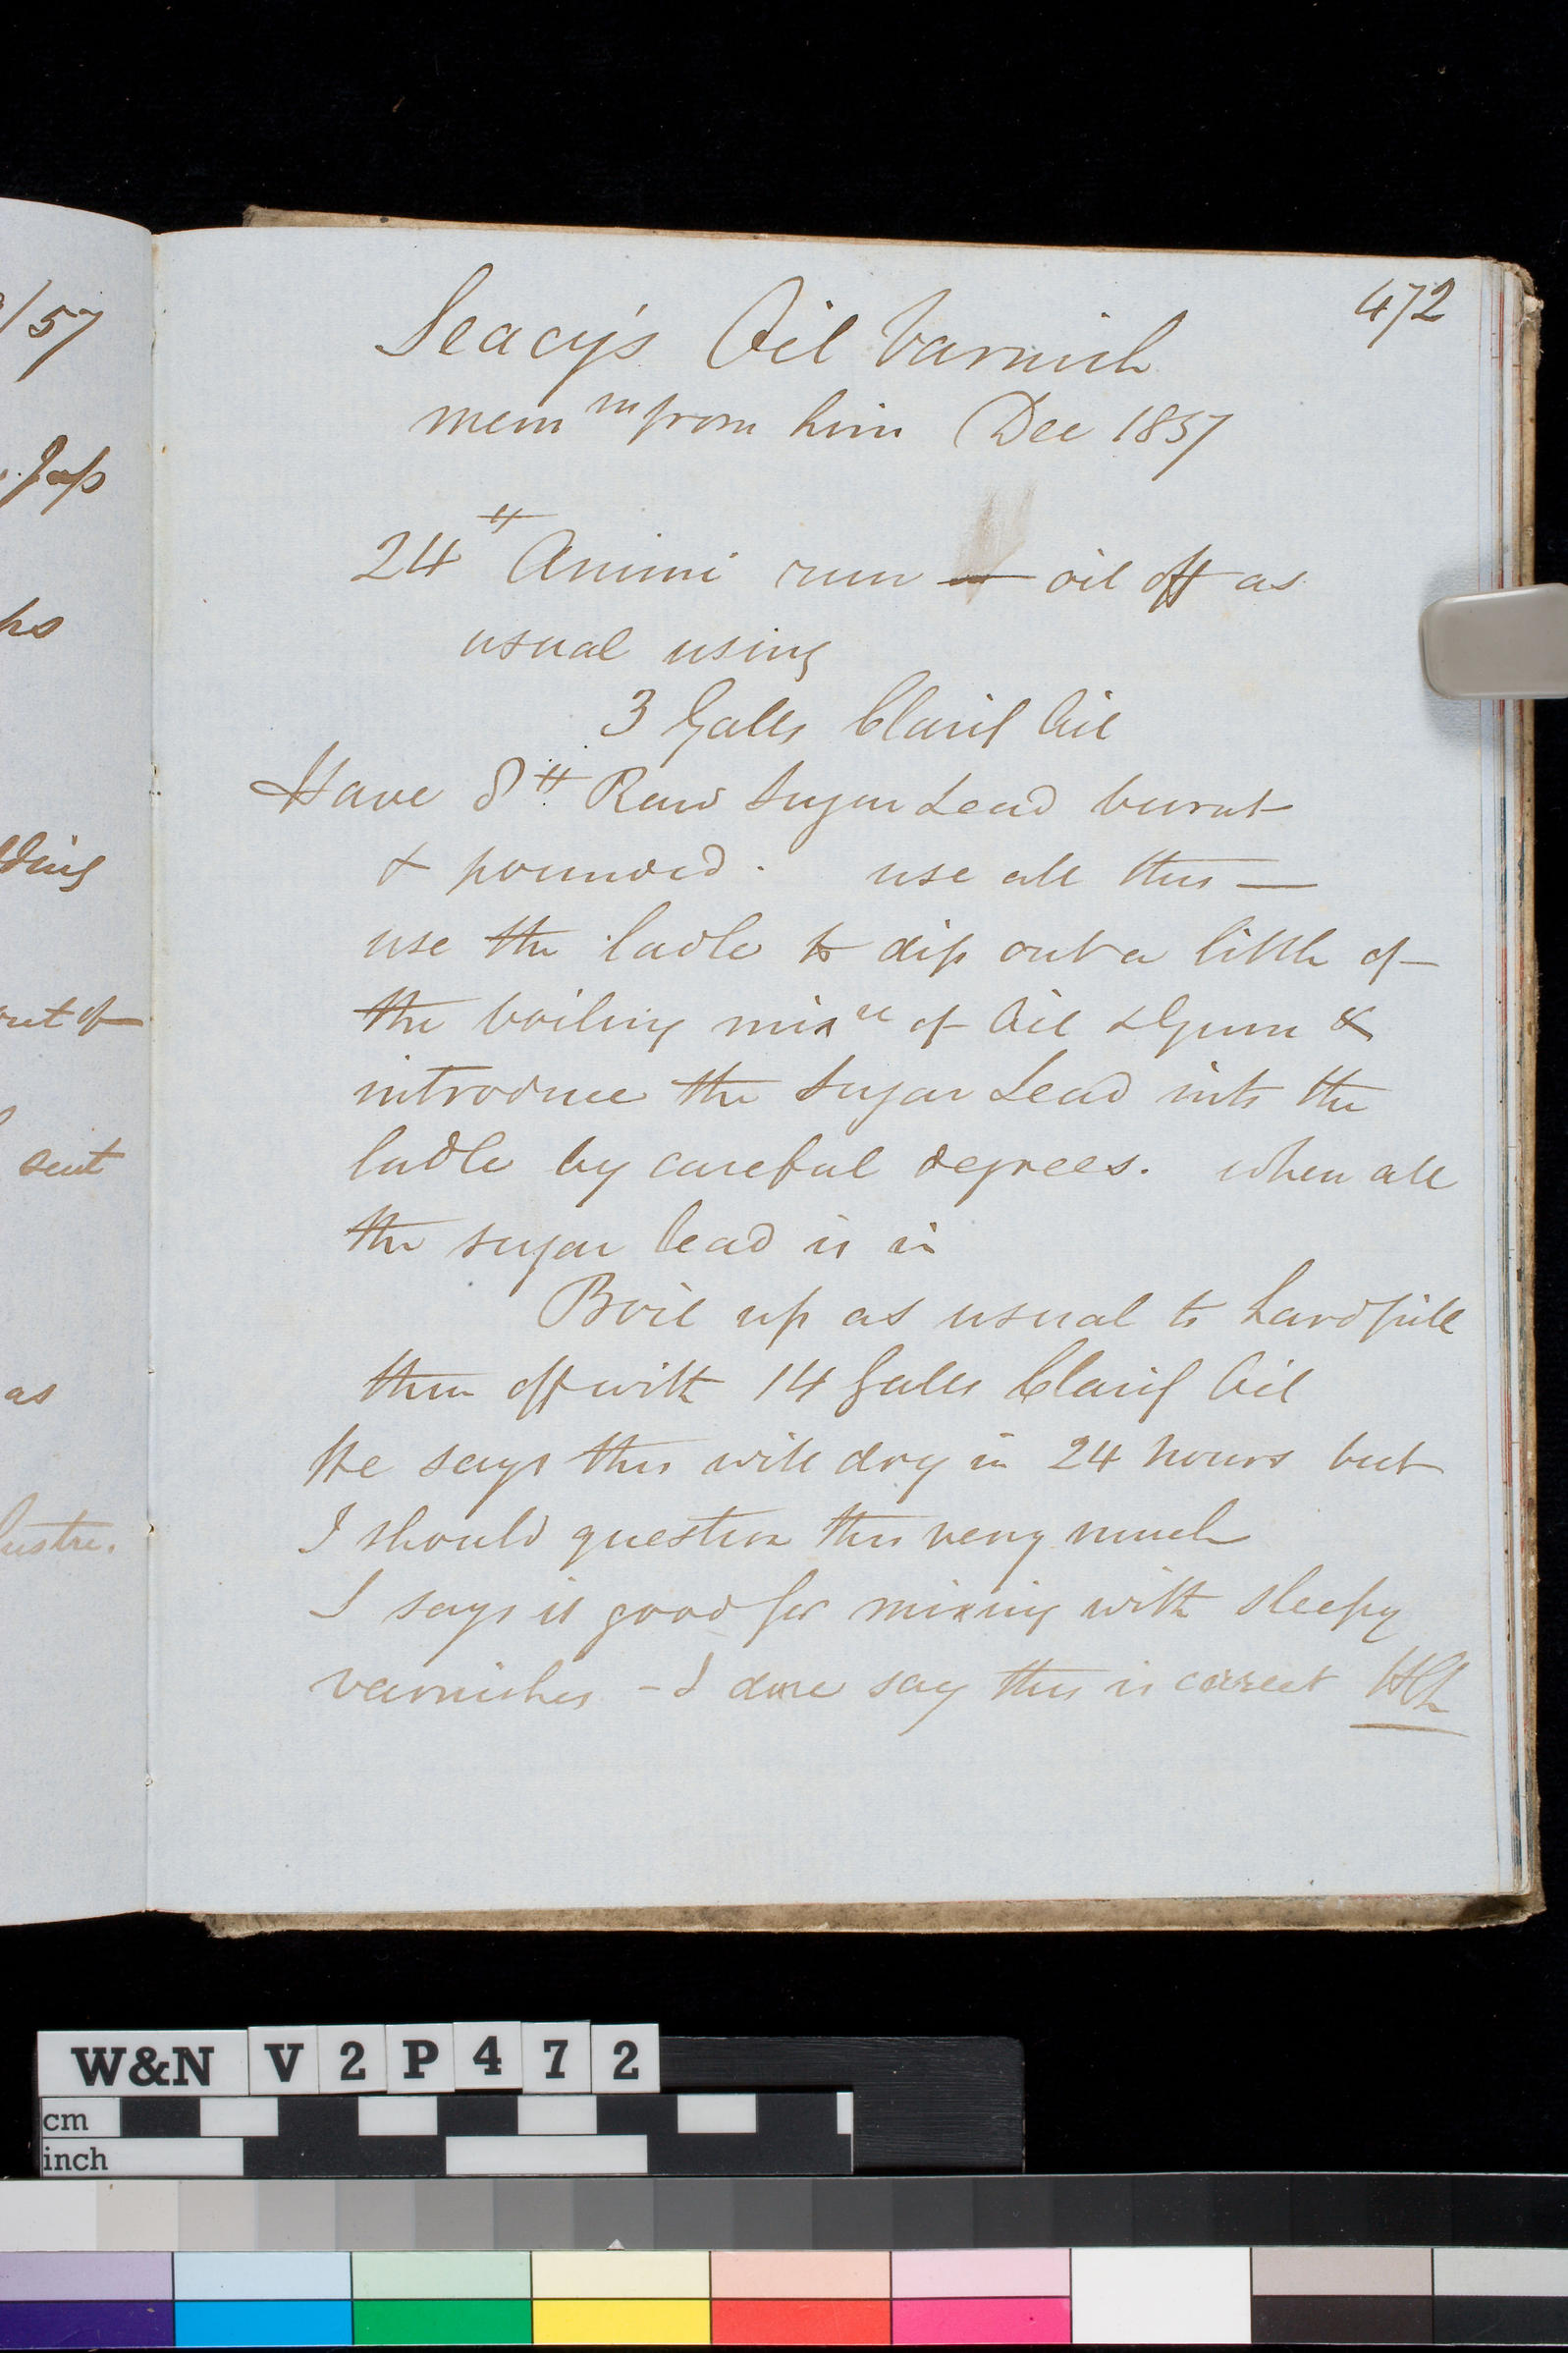 /57
Jap
ks
dding
out of
sent
as
lustre.
472
Seacy's Oil Varnish
mem m from him Dec 1857
24 # Animi run oil off as
usual using
3 Galls Clarif Oil
Have 8 # Raw Sugar Lead burnt
& pounded. use all this —
use the ladle to dip out a little of
the boiling mixre of Oil & Gum &
introduce the Sugar Lead into the
ladle by careful degrees. When all
the sugar lead is in
Boil up as usual to hard pill
then off with 14 Galls Clarif Oil
He says this will dry in 24 hours but
I should question this very much
I says is good for mixing with sleepy
varnishes - I dare say this is correct
W&N V2P472
cm
inch